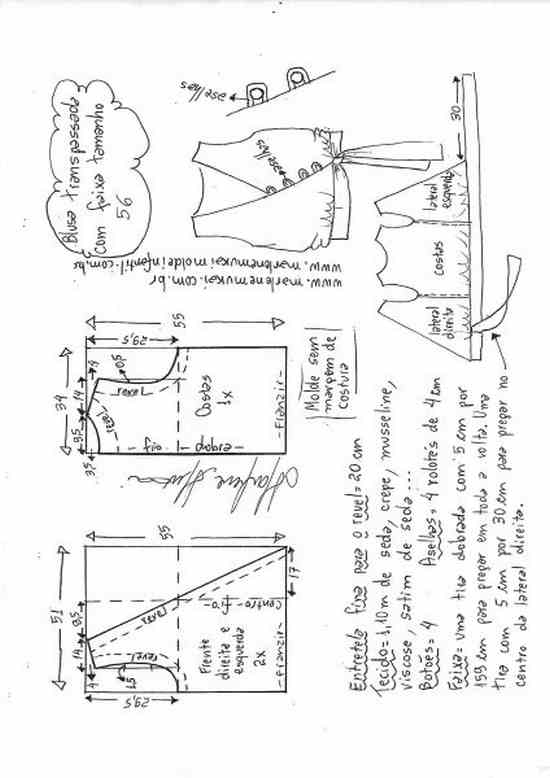 Blusa transpassada
com faixa tamanho
56
www.marlenemukai.com.br
www.marlenemukaimoldeinfantil.com.br
aselhas
aselhas
30
lateral
esquerda
costas
lateral
direita
34
9,5
14
4
3,5
29,5
55
revel
revel
Costas
1x
dobra
fio
-Franzir-
Molde sem
margem de
costura
51
14
8,5
4
1,5
29,5
55
17
revel
revel
Frente
direita e
esquerda
2x
Centro
fio
-Franzir-
Entretela fina para o revel=20 cm
Tecido=1,10m de seda, crepe, musseline,
viscose, satim de seda...
Botões=4 Aselhas=4 rolotés de 4cm
Faixa=uma tira dobrada com 5cm por
159 cm para pregar em toda a volta. Uma
tira com 5 cm por 30 cm para pregar no
centro da lateral direita.